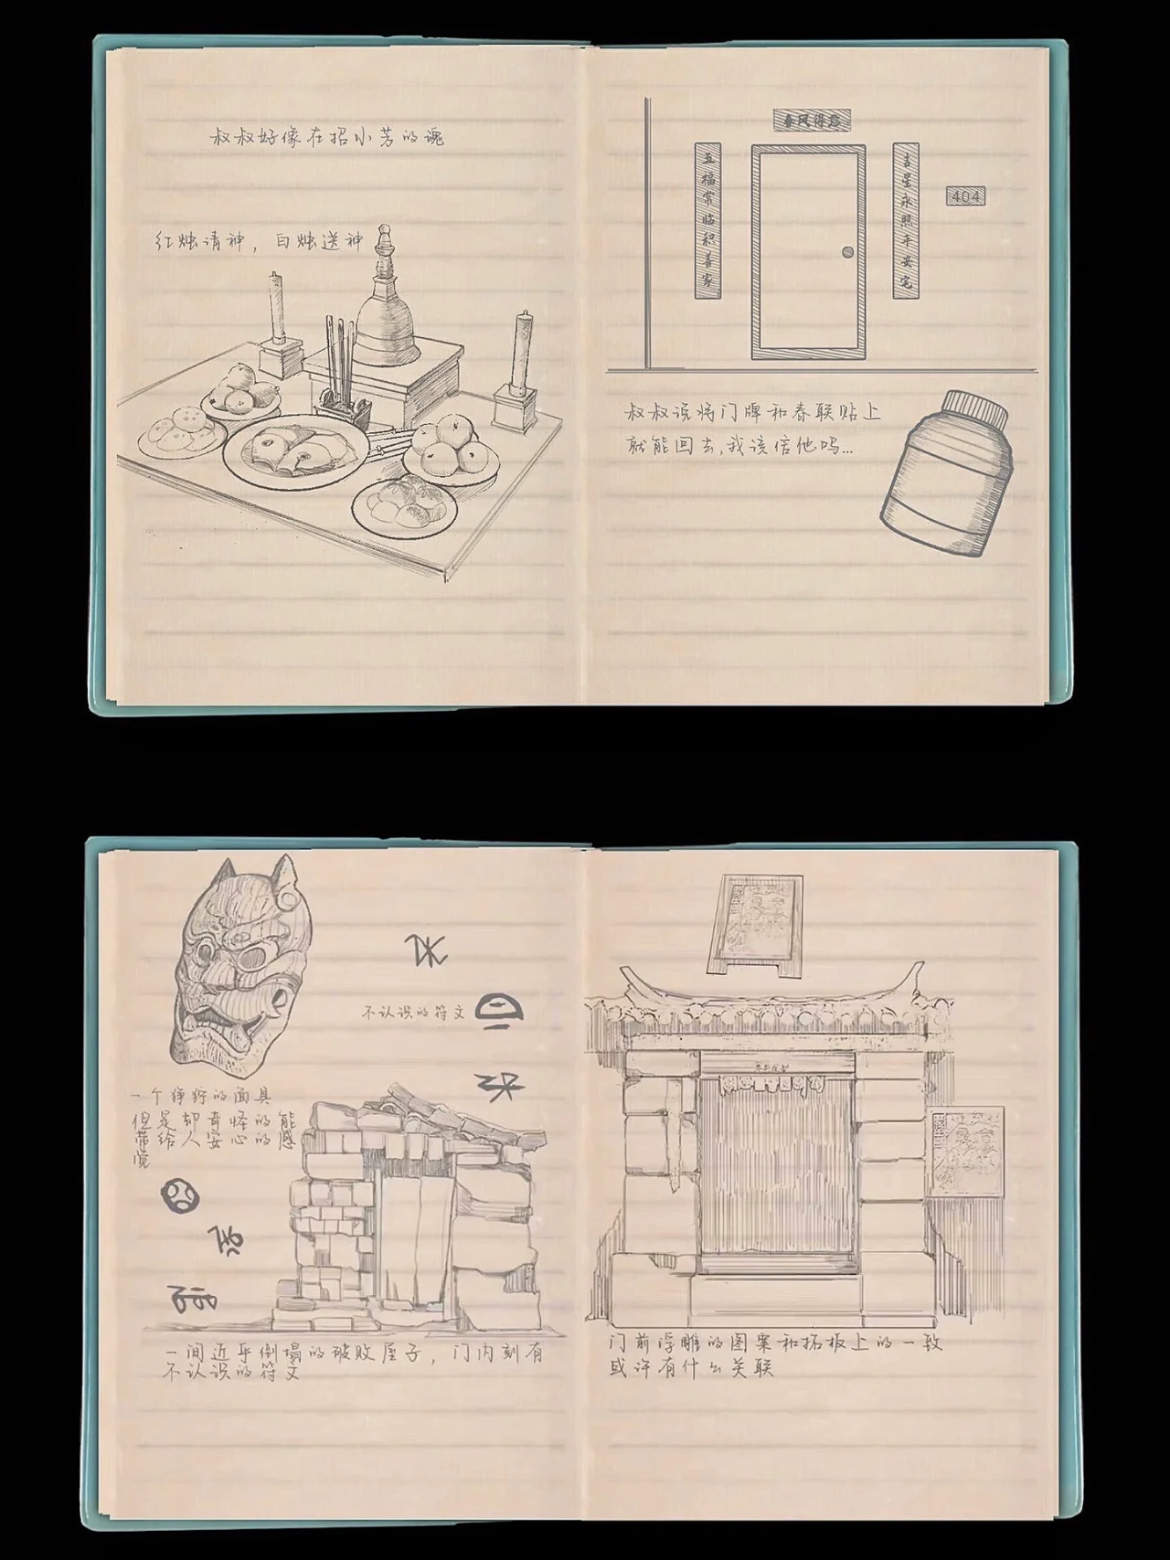 叔叔好像在招小芳的魂
红烛请神，白烛送神
春风得意
五福常临积善家
吉星永照平安宅
404
叔叔说将门牌和春联贴上
就能回去,我该信他吗...
不认识的符文
一个狰狞的面具
但是却奇怪的能
带给人安心的感
觉
一间近乎倒塌的破败屋子，门内刻有
不认识的符文
门前浮雕的图案和拓板上的一致
或许有什么关联